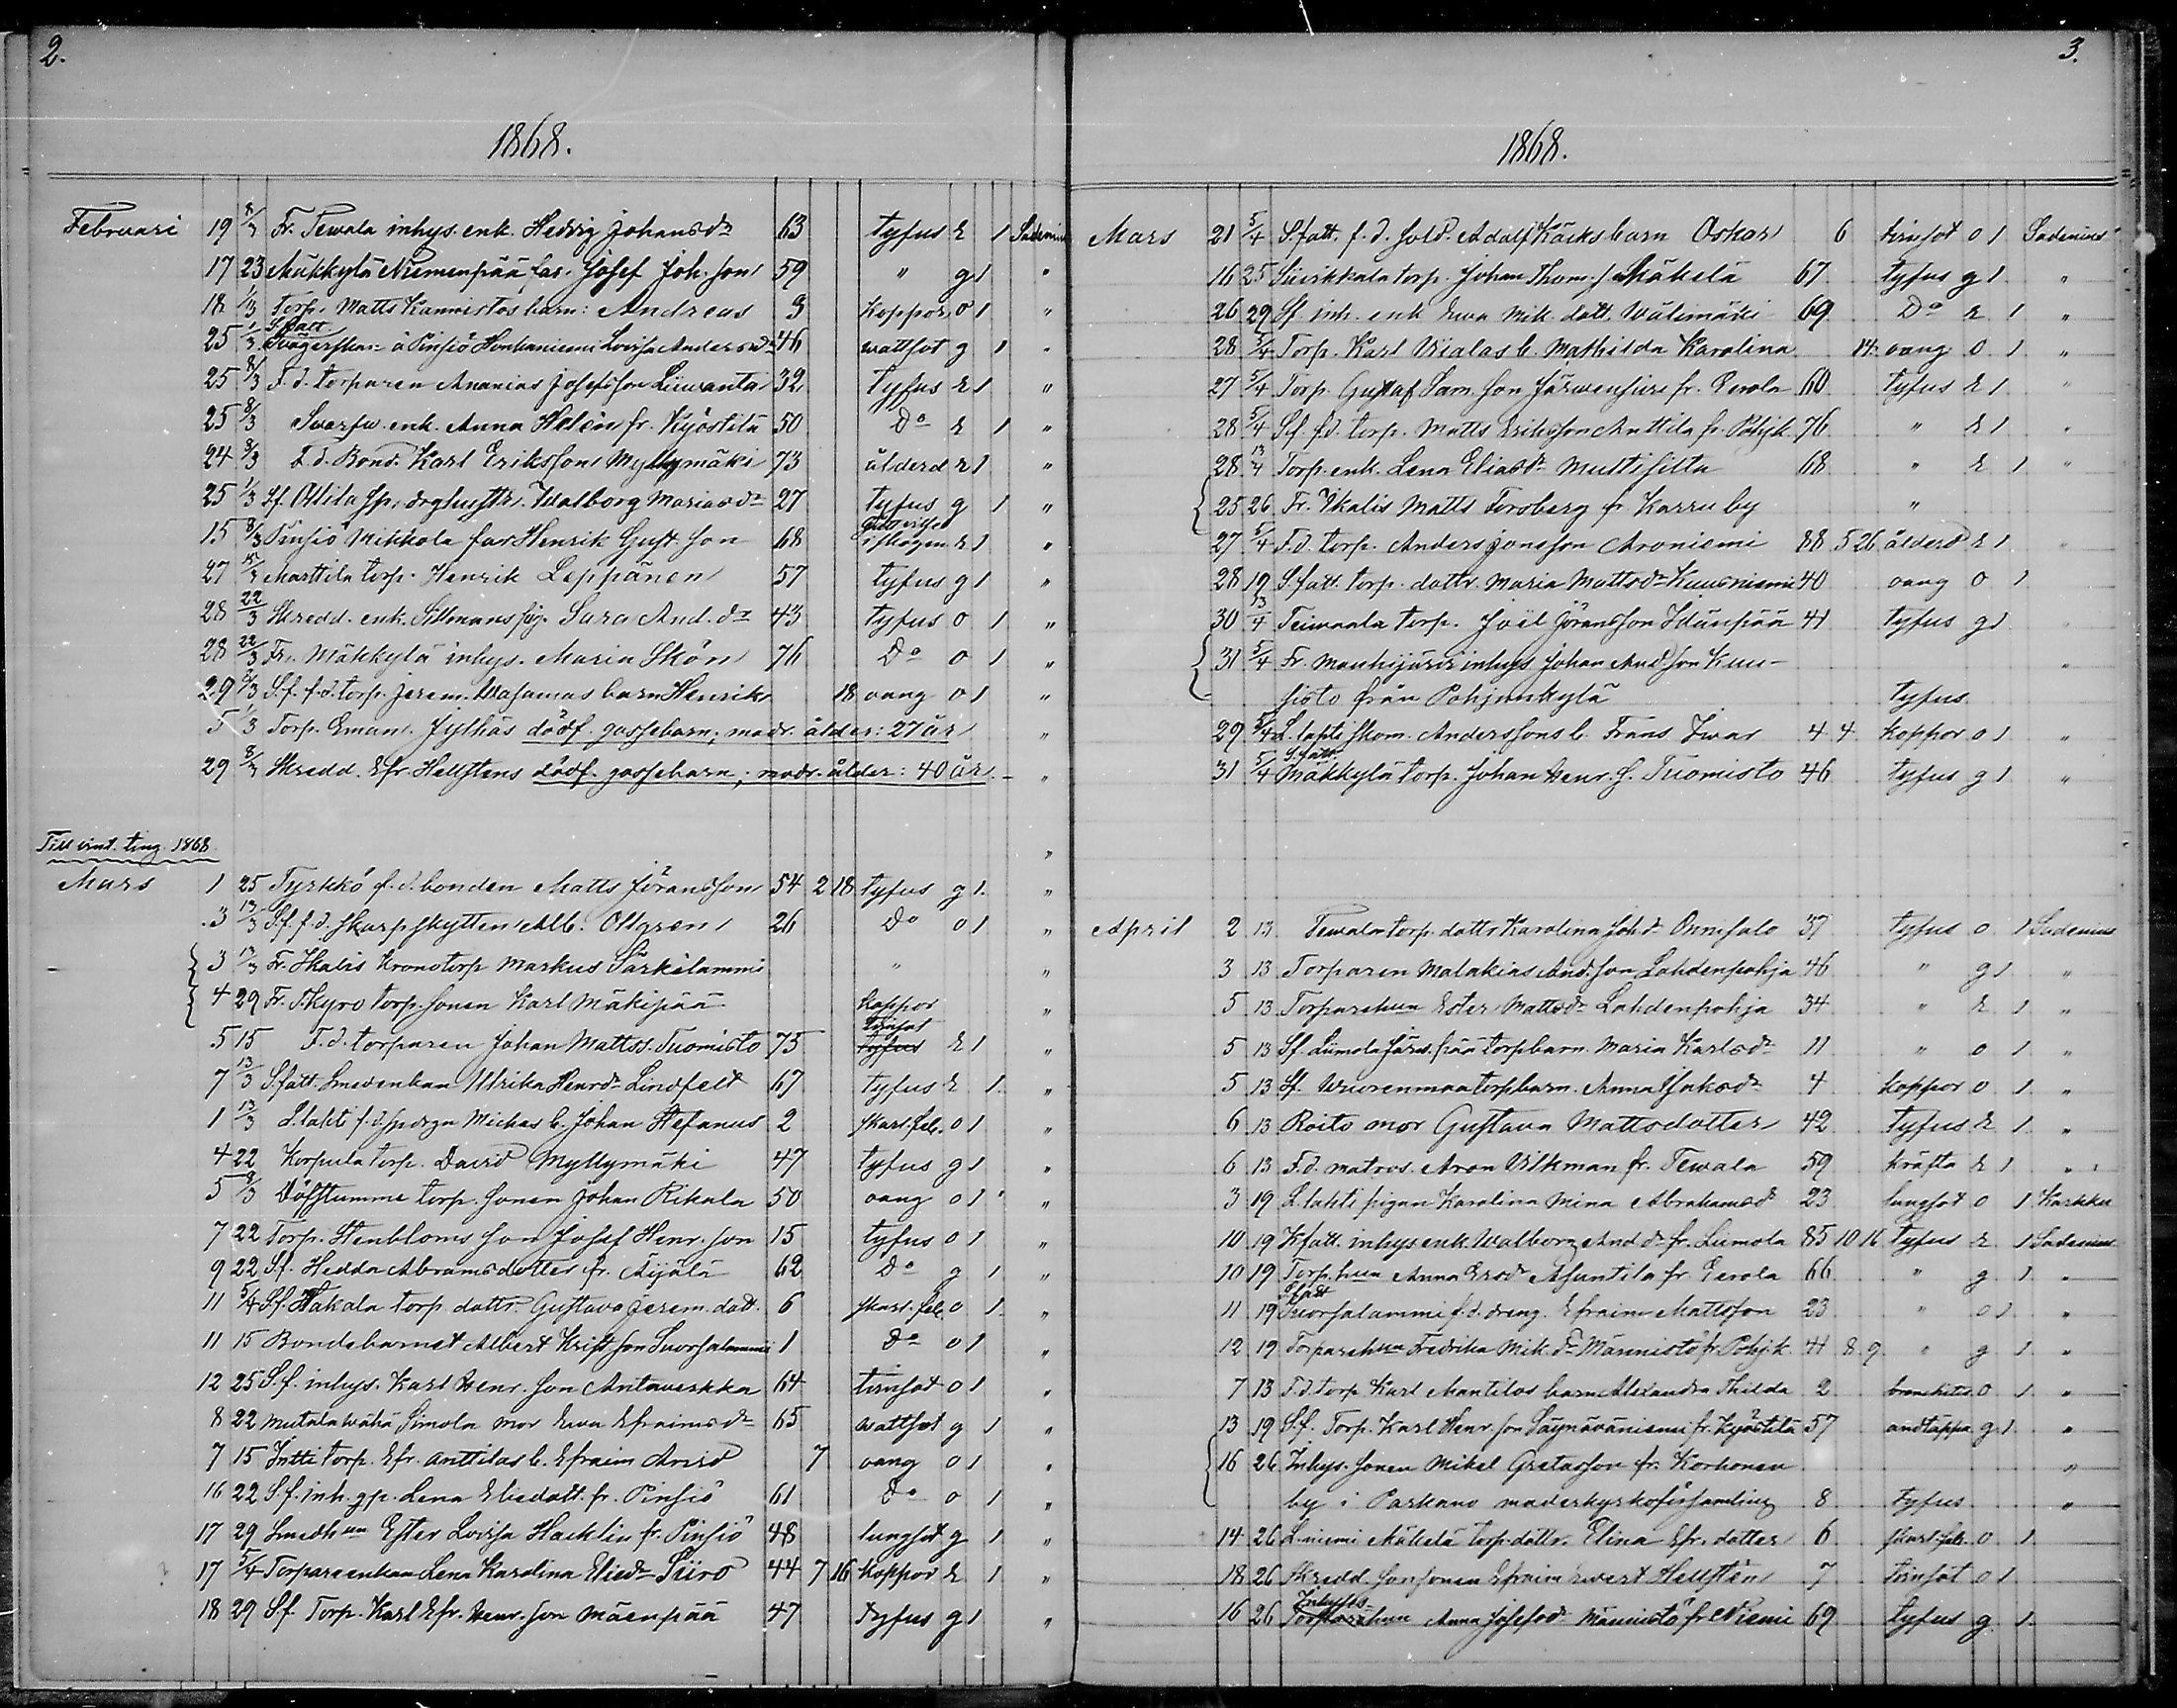 2.
1868.
Februari 19 8/3 Fr. Tewala inhys. enk. Hedvig Johansdr 63 tyfus e 1 Sadenius
17 23 Mäkkylä Niemenpää far. Josef Joh. son 59 " g 1 "
18 1/3 Torp. Matts Kannistos barn: Andreas 3 koppor o 1 "
S. fatt
25 1/3 Svägerskan å Pinsiö Honkaniemi Lovisa Andersdr 46 wattsot g 1 "
25 8/3 F. d. torparen Ananias Josefsson Liiwanta 32 tyfus e 1 "
25 8/3 Svarfw. enk. Anna Helén fr. Kyöstilä 50 Do e 1 "
24 8/3 F. d. Bond. Karl Eriksson Myllymäki 73 ålderd e 1 "
25 1/3 Sf. Ottila sp. drghustr. Walborg Mariasdr 27 tyfus g 1 "
15 8/3 Pinsiö Mikkola far Henrik Gust. son 68 i skogen e 1 "
27 Marttila torp. Henrik Leppänen 57 tyfus g 1 "
28 22/3 Skredd. enk. Sillmans pig. Sara And. dr 43 tyfus o 1 "
28 22/3 Fr. Mäkkylä inhys. Maria Skön 76 Do o 1 "
29 8/3 S.f. f.d. torp. Jerem. Wasamas barn Henrik 18 oang o 1 "
5 1/3 Torp. Eman. Jylhäs dödf. gossebarn; modr. ålder: 27 år "
29 8/3 Skredd. Efr. Hellstens dödf. gossebarn; modr. ålder: 40 år "
Till vint. ting 1868. "
Mars 1 25 Tyrkkö f. d. bonden Matts Göransson 54 2 18 tyfus g 1. "
3 13/3 S.f. f. d. skarpskytten Alb. Ollgren 26 Do o 1 "
3 13/3 Fr. Ikalis Kronotorp Markus Särkilammi " "
4 29 Fr. Kyro torp. sonen Karl Mäkipää koppor "
5 15 F. d. torparen Johan Mattss. Tuomisto 75 tvinsot tyfus e 1 "
7 13/3 S.fatt. Smedenkan Ulrika Henrdr Lindfelt 67 tyfus e 1. "
1 13/3 L.lahti f. d. spdrgn Michas b. Johan Stefanus 2 skarl. feb. o 1 "
4 22 Korpula torp. David Myllymäki 47 tyfus g 1 "
5 8/3 Döfstumme torp. sonen Johan Rikala 50 oang o 1 "
7 22 Torp. Stenbloms son Josef Henr. son 15 tyfus o 1 "
9 22 Sf. Hedda Abramsdotter fr. Äijälä 62 Do g 1 "
11 5/4 S.f. Hakala torp. dottr. Gustava Jerem. dott. 6 skarl. feb. o 1 "
11 15 Bondebarnet Albert Krist. son Suorsalammi 1 Do o 1 "
12 25 S.f. inhys. Karl Henr. son Antaverkka 64 tvinsot o 1 "
8 22 Mutala wähä Simola mor Ewa Efraimsdr 65 wattsot g 1 "
7 15 Intti torp. Efr. Anttilas b. Efraim Arvid 7 oang o 1 "
16 22 S.f. inh. gp. Lena Eliedott. fr. Pinsiö 61 Do o 1 "
17 29 Smedhun Ester Lovisa Hacklin fr. Pinsiö 48 lungsot g 1 "
17 5/4 Torpareenkan Lena Karolina Eliedr Siiro 44 7 16 koppor e 1 "
18 29 S.f. Torp. Karl Efr. Henr. son Mäenpää 47 Tyfus g 1 "
3.
1868.
Mars 21 5/4 S.fatt. f. d. sold. Adolf Käcks barn Oskar 6 tvinsot o 1 Sadenius
16 25 Siivikkala torp. Johan Thom. s. Mäkelä 67 tyfus g 1. "
26 29 Sf. inh. enk. Ewa Mik. dott. Wälimäki 69 Do e 1 "
28 5/4 Torp. Karl Wialas b. Mathilda Karolina 14. oang o 1. "
27 5/4 Torp. Gustaf Sam. son Järwensivu fr. Gerola 60 tyfus e 1. "
28 5/4 Sf. f.d. torp. Matts Eriksson Anttila fr. Pohjk. 76 " e 1 "
28 13/4 Torp. enk. Lena Eliasdr Multisilta 68 " e 1 "
25 26 Fr. Ikalis Matts Forsberg fr. Karru by "
27 5/4 F.d. torp. Anders Jonsson Aroniemi 88 5 26 ålderd e 1 "
28 19 S.fatt. torp. dottr. Maria Mattsdr Kuusniemi 40 oang o 1
30 13/4 Teiwaala torp. Joël Göransson Idänpää 41 tyfus g 1 "
31 5/4 Fr. Mouhijärvi inhys Johan And. son Kuu- "
sisto från Pohjankylä tyfus
29 5/4 L.lahti skom. Anderssons b. Frans Iwar 4 4 koppor o 1 "
S.fatt
31 5/4 Mäkkylä torp. Johan Henr. s. Tuomisto 46 tyfus g 1 "
April 2 13 Tewala torp. dottr Karolina Joh.dr Onnisalo 37 tyfus o 1 Sadenius
3 13 Torparen Malakias And. son Lahdenpohja 46 " g 1 "
5 13 Torparehun Ester Mattsdr Lahdenpohja 34 " e 1 "
5 13 Sf. Liimola Järv. pää torp barn. Maria Karlsdr 11 " o 1 "
5 13 Sf. Wuorenmaa torp barn. Anna Isaksdr 4 koppor o 1. "
6 13 Roito mor Gustava Mattsdotter 42 tyfus e 1. "
6 13 F.d. matros. Aron Vilkman fr. Tewala 59 kräfta e 1 "
3 19 L.lahti pigan Karolina Mina Abrahamsdr 23 lungsot o 1 Karkku
10 19 K.fatt. inhys enk. Walborg And. dr fr. Liimola 85 10 16 tyfus e 1 Sadenius
10 19 Torp. hun Anna Ersdr Asuntila fr. Gerola 66 " g 1. "
S.fatt
11 19 Suorsalammi f. d. dreng. Efraim Mattsson 23 " o 1 "
12 19 Torparehun Fredrika Mik. dr Männistö fr. Pohj.k. 41 8. 9. " g 1. "
7 13 F.d. torp. Karl Mantilas barn Alexandra Thilda 2 bronchitis o 1. "
13 19 S.f. Torp. Karl Henr. son Säynäväniemi fr. Kyöstilä 57 andtäppa g. 1. "
16 26 Inhys. sonen Mikel Gretasson fr. Korhonen "
by i Parkano moderkyrkoförsamling 8 tyfus "
14 26 L.niemi Mäkelä torp. dottr. Elina Efr. dotter 6 skarl. feb. o 1.
18 26 Skredd. sonsonen Efraim Evert Hellstén 7 tvinsot o 1
Inhyses
16 26 Torparehun Anna Josefsdr Männistö fr. Niemi 69 tyfus g 1.